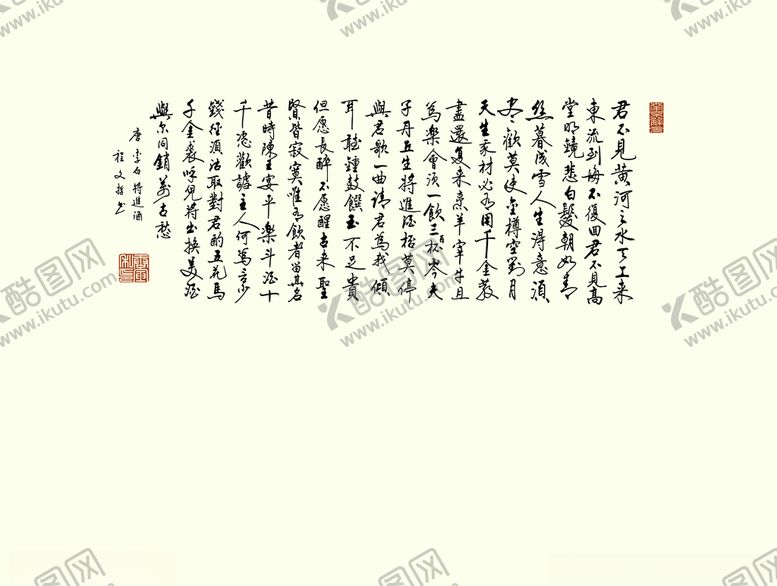 君不見黄河之水天上来
東流到海不復回君不見高
堂明鏡悲白髮朝如青
丝暮成雪人生得意須
尽歡莫使金樽空對月
天生我材必有用千金散
盡還復来烹羊宰牛且
為樂會須一飲三百杯岑夫
子丹丘生將進酒杯莫停
與君歌一曲請君為我傾
耳聽鐘鼓饌玉不足貴
但愿長醉不愿醒古来聖
賢皆寂寞唯有飲者留其名
昔時陳王宴平樂斗酒十
千恣歡謔主人何為言少
錢徑須沽取對君酌五花馬
千金裘呼兒將出換美酒
與尔同銷萬古愁
唐李白將進酒
程文书
酷图网
www.ikutu.com